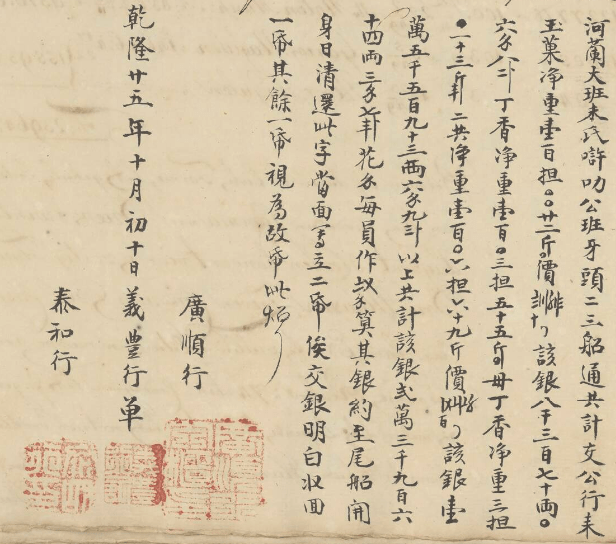 河蘭大班末氏叻公班牙頭二三船通共計交公行来
玉菓净重壹百担〇〇廿二斤價該銀八千三百七十両〇
六分八丁香净重壹百〇三担五十五斤毋丁香净重三担
〇一十三斤半二共净重壹百〇六担六十九斤價該銀壹
萬五千五百九十三両六分九以上共計該銀弍萬三千九百六
十四両三分七花每員作算其銀約至尾船開
身日清還此字當面寫立二帋俟交銀明白收回
一帋其餘一帋視為故帋此炤
廣順行
乾隆廿五年十月初十日義豊行单
泰和行